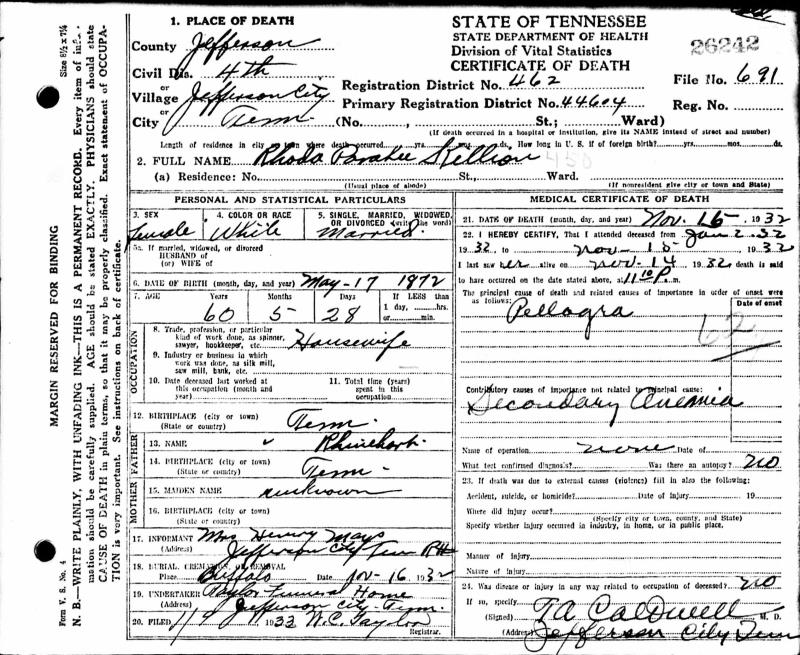 STATE OF TENNESSEE
STATE DEPARTMENT OF HEALTH
Division of Vital Statistics
CERTIFICATE OF DEATH
26242
1. PLACE OF DEATH
County Jefferson
Civil Dis. 4th
or
Village Jefferson City
or
City Tenn
Registration District No. 462
File No. 691
Primary Registration District No. 44604
Reg. No.
(No. , St.; Ward)
(If death occurred in a hospital or institution, give its NAME instead of street and number)
Length of residence in city or town where death occurred yrs. mos. ds. How long in U. S. if of foreign birth? yrs. mos. ds.
2. FULL NAME Rhoda Skellion
(a) Residence: No. St., Ward.
(Usual place of abode) (If nonresident give city or town and State)
PERSONAL AND STATISTICAL PARTICULARS
3. SEX
Female
4. COLOR OR RACE
White
5. SINGLE, MARRIED, WIDOWED, OR DIVORCED (write the word)
Married
5a. If married, widowed, or divorced
HUSBAND of
(or) WIFE of
6. DATE OF BIRTH (month, day, and year) May-17 1872
7. AGE Years Months Days If LESS than
60 5 28 1 day, hrs.
or min.
OCCUPATION
8. Trade, profession, or particular
kind of work done, as spinner,
sawyer, bookkeeper, etc. Housewife
9. Industry or business in which
work was done, as silk mill,
saw mill, bank, etc.
10. Date deceased last worked at
this occupation (month and
year)
11. Total time (years)
spent in this
occupation
12. BIRTHPLACE (city or town)
(State or country) Tenn.
FATHER
13. NAME Rhinehart
14. BIRTHPLACE (city or town)
(State or country) Tenn
MOTHER
15. MAIDEN NAME unknown
16. BIRTHPLACE (city or town)
(State or country)
17. INFORMANT Mrs Henry Mays
(Address) Jefferson City Tenn
18. BURIAL, CREMATION, OR REMOVAL
Place Buffalo Date Nov-16 1932
19. UNDERTAKER Taylor Funeral Home
(Address) Jefferson City Tenn.
20. FILED 1933 W.C. Taylor
Registrar.
MEDICAL CERTIFICATE OF DEATH
21. DATE OF DEATH (month, day, and year) Nov. 15, 1932
22. I HEREBY CERTIFY, That I attended deceased from Jan 2 32
1932 to Nov-15 1932
I last saw her alive on Nov-14 1932 death is said
to have occurred on the date stated above, at 11 10 P.m.
The principal cause of death and related causes of importance in order of onset were
as follows: Date of onset
Pellagra
62
Contributory causes of importance not related to principal cause:
Secondary Anemia
Name of operation none Date of
What test confirmed diagnosis? Was there an autopsy? no
23. If death was due to external causes (violence) fill in also the following:
Accident, suicide, or homicide? Date of injury 19
Where did injury occur?
(Specify city or town, county, and State)
Specify whether injury occurred in industry, in home, or in public place.
Manner of injury
Nature of injury
24. Was disease or injury in any way related to occupation of deceased? no
If so, specify
(Signed) T A Caldwell M. D.
(Address) Jefferson City Tenn
Form V. S. No. 4
Size 8½ x 7¼
MARGIN RESERVED FOR BINDING
N. B.—WRITE PLAINLY, WITH UNFADING INK—THIS IS A PERMANENT RECORD. Every item of infor-
mation should be carefully supplied. AGE should be stated EXACTLY. PHYSICIANS should state
CAUSE OF DEATH in plain terms, so that it may be properly classified. Exact statement of OCCUPA-
TION is very important. See instructions on back of certificate.